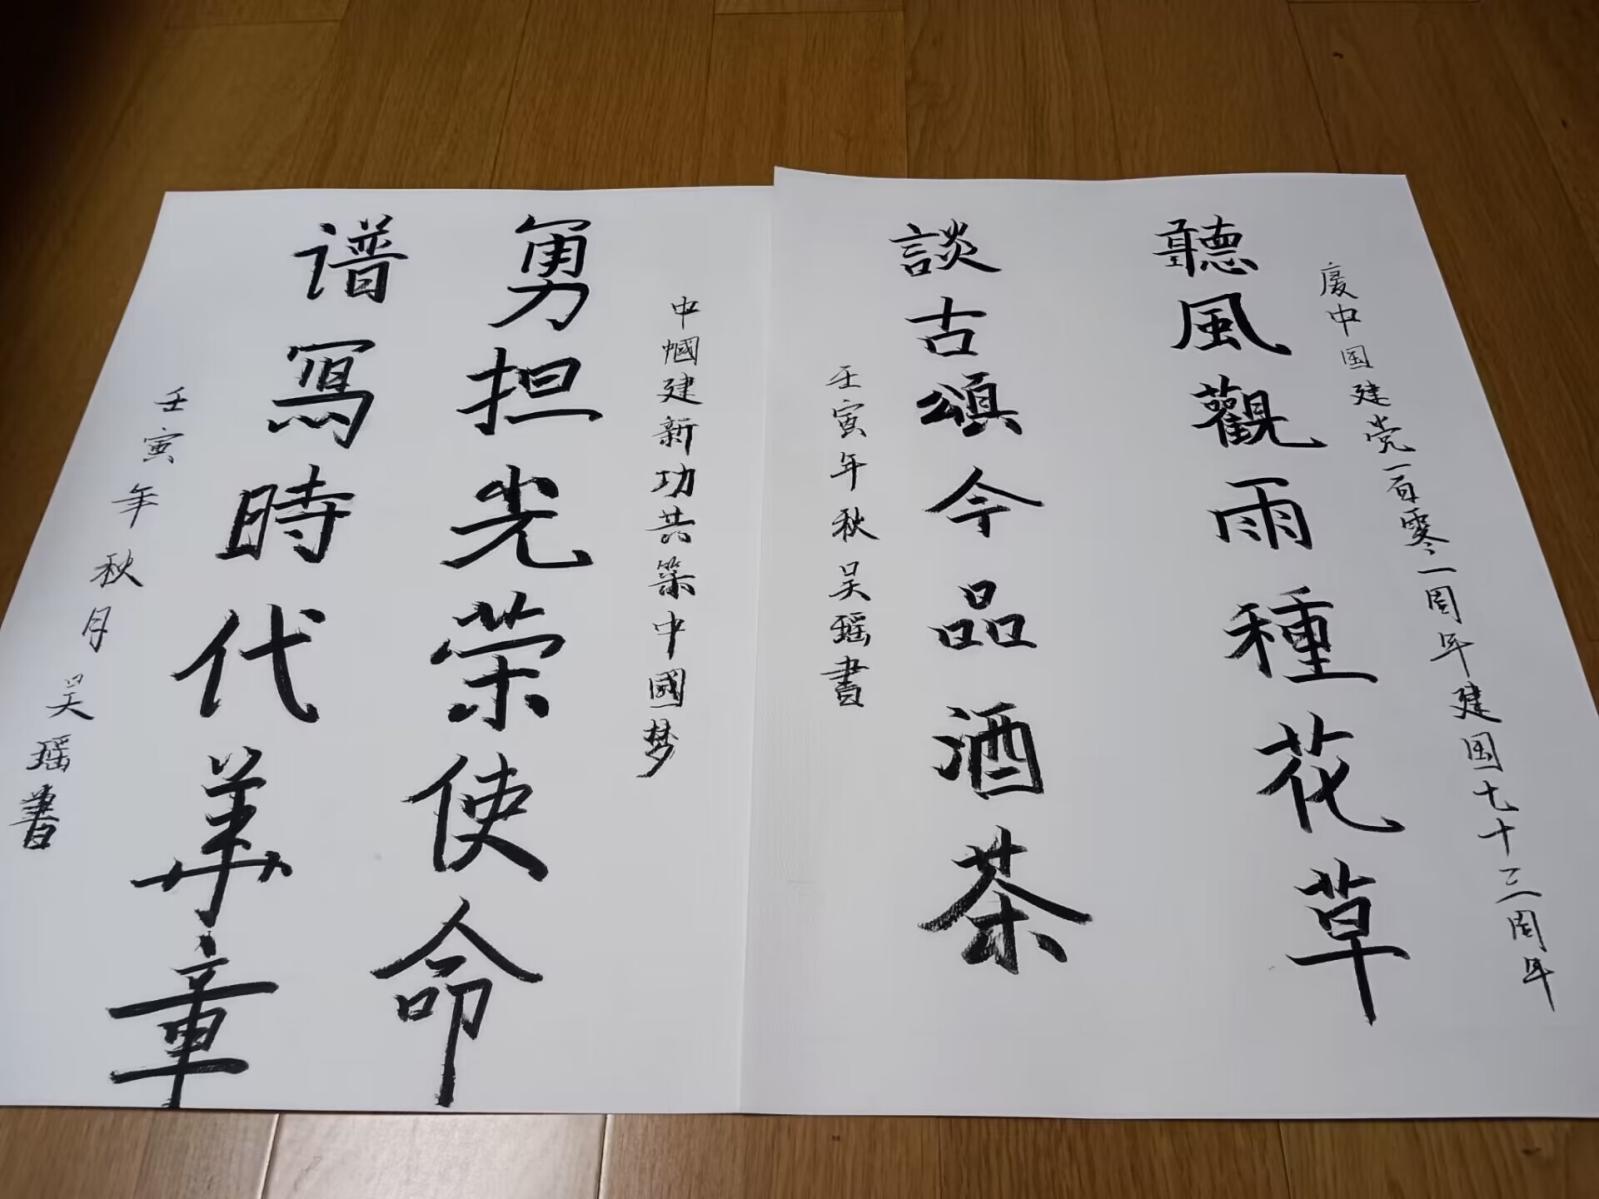 慶中国建党一百零一周年建国七十三周年
聽風觀雨種花草
談古頌今品酒茶
壬寅年秋吴瑶書
巾幗建新功共築中國梦
勇担光荣使命
谱寫時代華章
壬寅年秋月吴瑶書